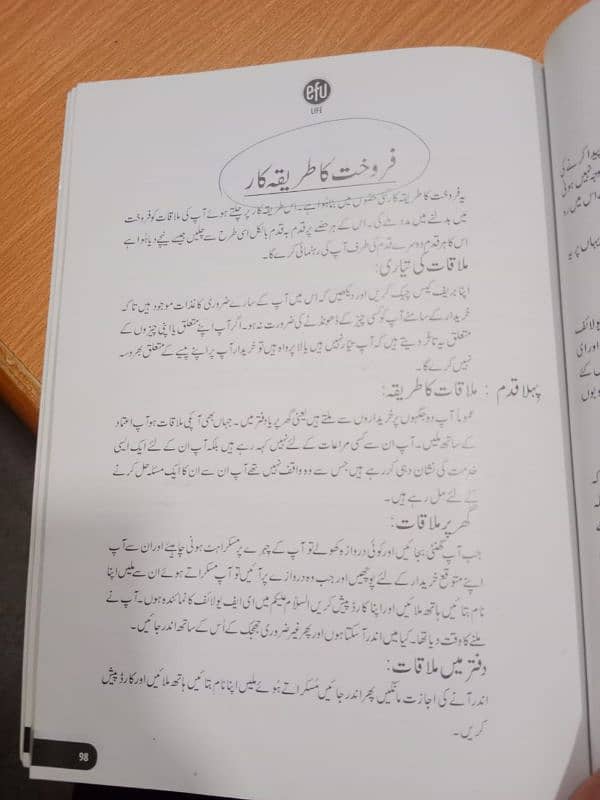 efu
LIFE
فروخت کا طریقہ کار
یہ فروخت کا طریقہ کار کئی حصّوں میں بٹا ہوا ہے۔ اس طریقہ کار پر چلتے ہوئے آپ کی ملاقات کو فروخت
میں بدلنے میں مدد ملے گی۔ اس کے ہر حصّے پر قدم بہ قدم بالکل اسی طرح سے چلیں جیسے نیچے دیا ہوا ہے
اس کا ہر قدم دوسرے قدم کی طرف آپ کی رہنمائی کرے گا۔
ملاقات کی تیاری:
اپنا بریف کیس چیک کریں اور دیکھیں کہ اس میں آپ کے سارے ضروری کاغذات موجود ہیں تا کہ
خریدار کے سامنے آپ کو کسی چیز کے ڈھونڈنے کی ضرورت نہ ہو۔ اگر آپ اپنے متعلق یا اپنی چیزوں کے
متعلق یہ تاثر دیتے ہیں کہ آپ تیار نہیں ہیں یا لا پرواہ ہیں تو خریدار آپ پر اپنے پیسے کے متعلق بھروسہ
نہیں کرے گا۔
پہلا قدم : ملاقات کا طریقہ:
عموماً آپ دو جگہوں پر خریداروں سے ملتے ہیں یعنی گھر پر یا دفتر میں۔ جہاں بھی آپکی ملاقات ہو آپ اعتماد
کے ساتھ ملیں۔ آپ ان سے کسی مراعات کے لئے نہیں کہہ رہے ہیں بلکہ آپ ان کے لئے ایک ایسی
خدمت کی نشان دہی کر رہے ہیں جس سے وہ واقف نہیں تھے آپ ان سے ان کا ایک مسئلہ حل کرنے
کے لئے مل رہے ہیں۔
گھر پر ملاقات:
جب آپ گھنٹی بجائیں اور کوئی دروازہ کھولے تو آپ کے چہرے پر مسکراہٹ ہونی چاہیئے اور ان سے آپ
اپنے متوقع خریدار کے لئے پوچھیں اور جب وہ دروازے پر آئیں تو آپ مسکراتے ہوئے ان سے ملیں اپنا
نام بتائیں ہاتھ ملائیں اور اپنا کارڈ پیش کریں السلام علیکم میں ای ایف یو لائف کا نمائندہ ہوں۔ آپ نے
ملنے کا وقت دیا تھا۔ کیا میں اندر آ سکتا ہوں اور پھر غیر ضروری جھجک کے اُس کے ساتھ اندر جائیں۔
دفتر میں ملاقات:
اندر آنے کی اجازت مانگیں پھر اندر جائیں مُسکراتے ہُوئے ملیں اپنا نام بتائیں ہاتھ ملائیں اور کارڈ پیش
کریں۔
98